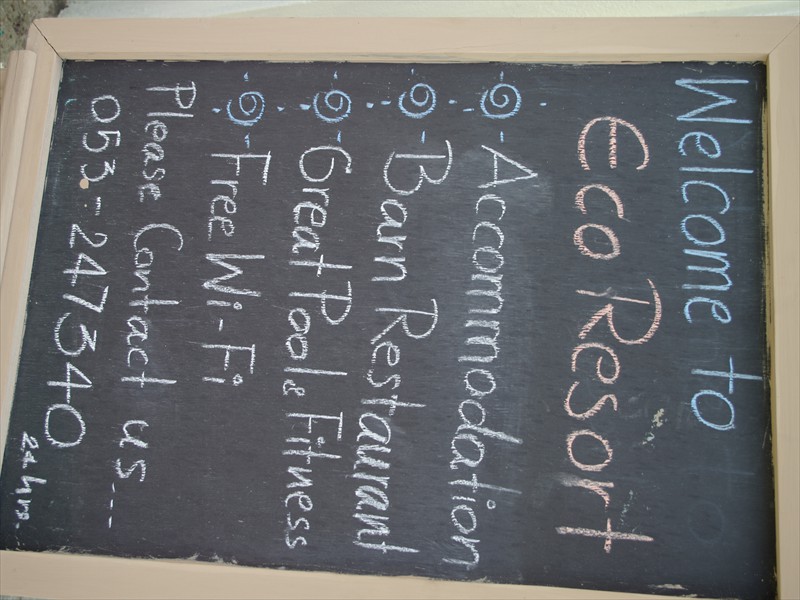 Welcome to
Eco Resort
Accommodation
Barn Restaurant
Great Pool & Fitness
Free Wi-Fi
Please Contact us...
053-247340
24 hrs...